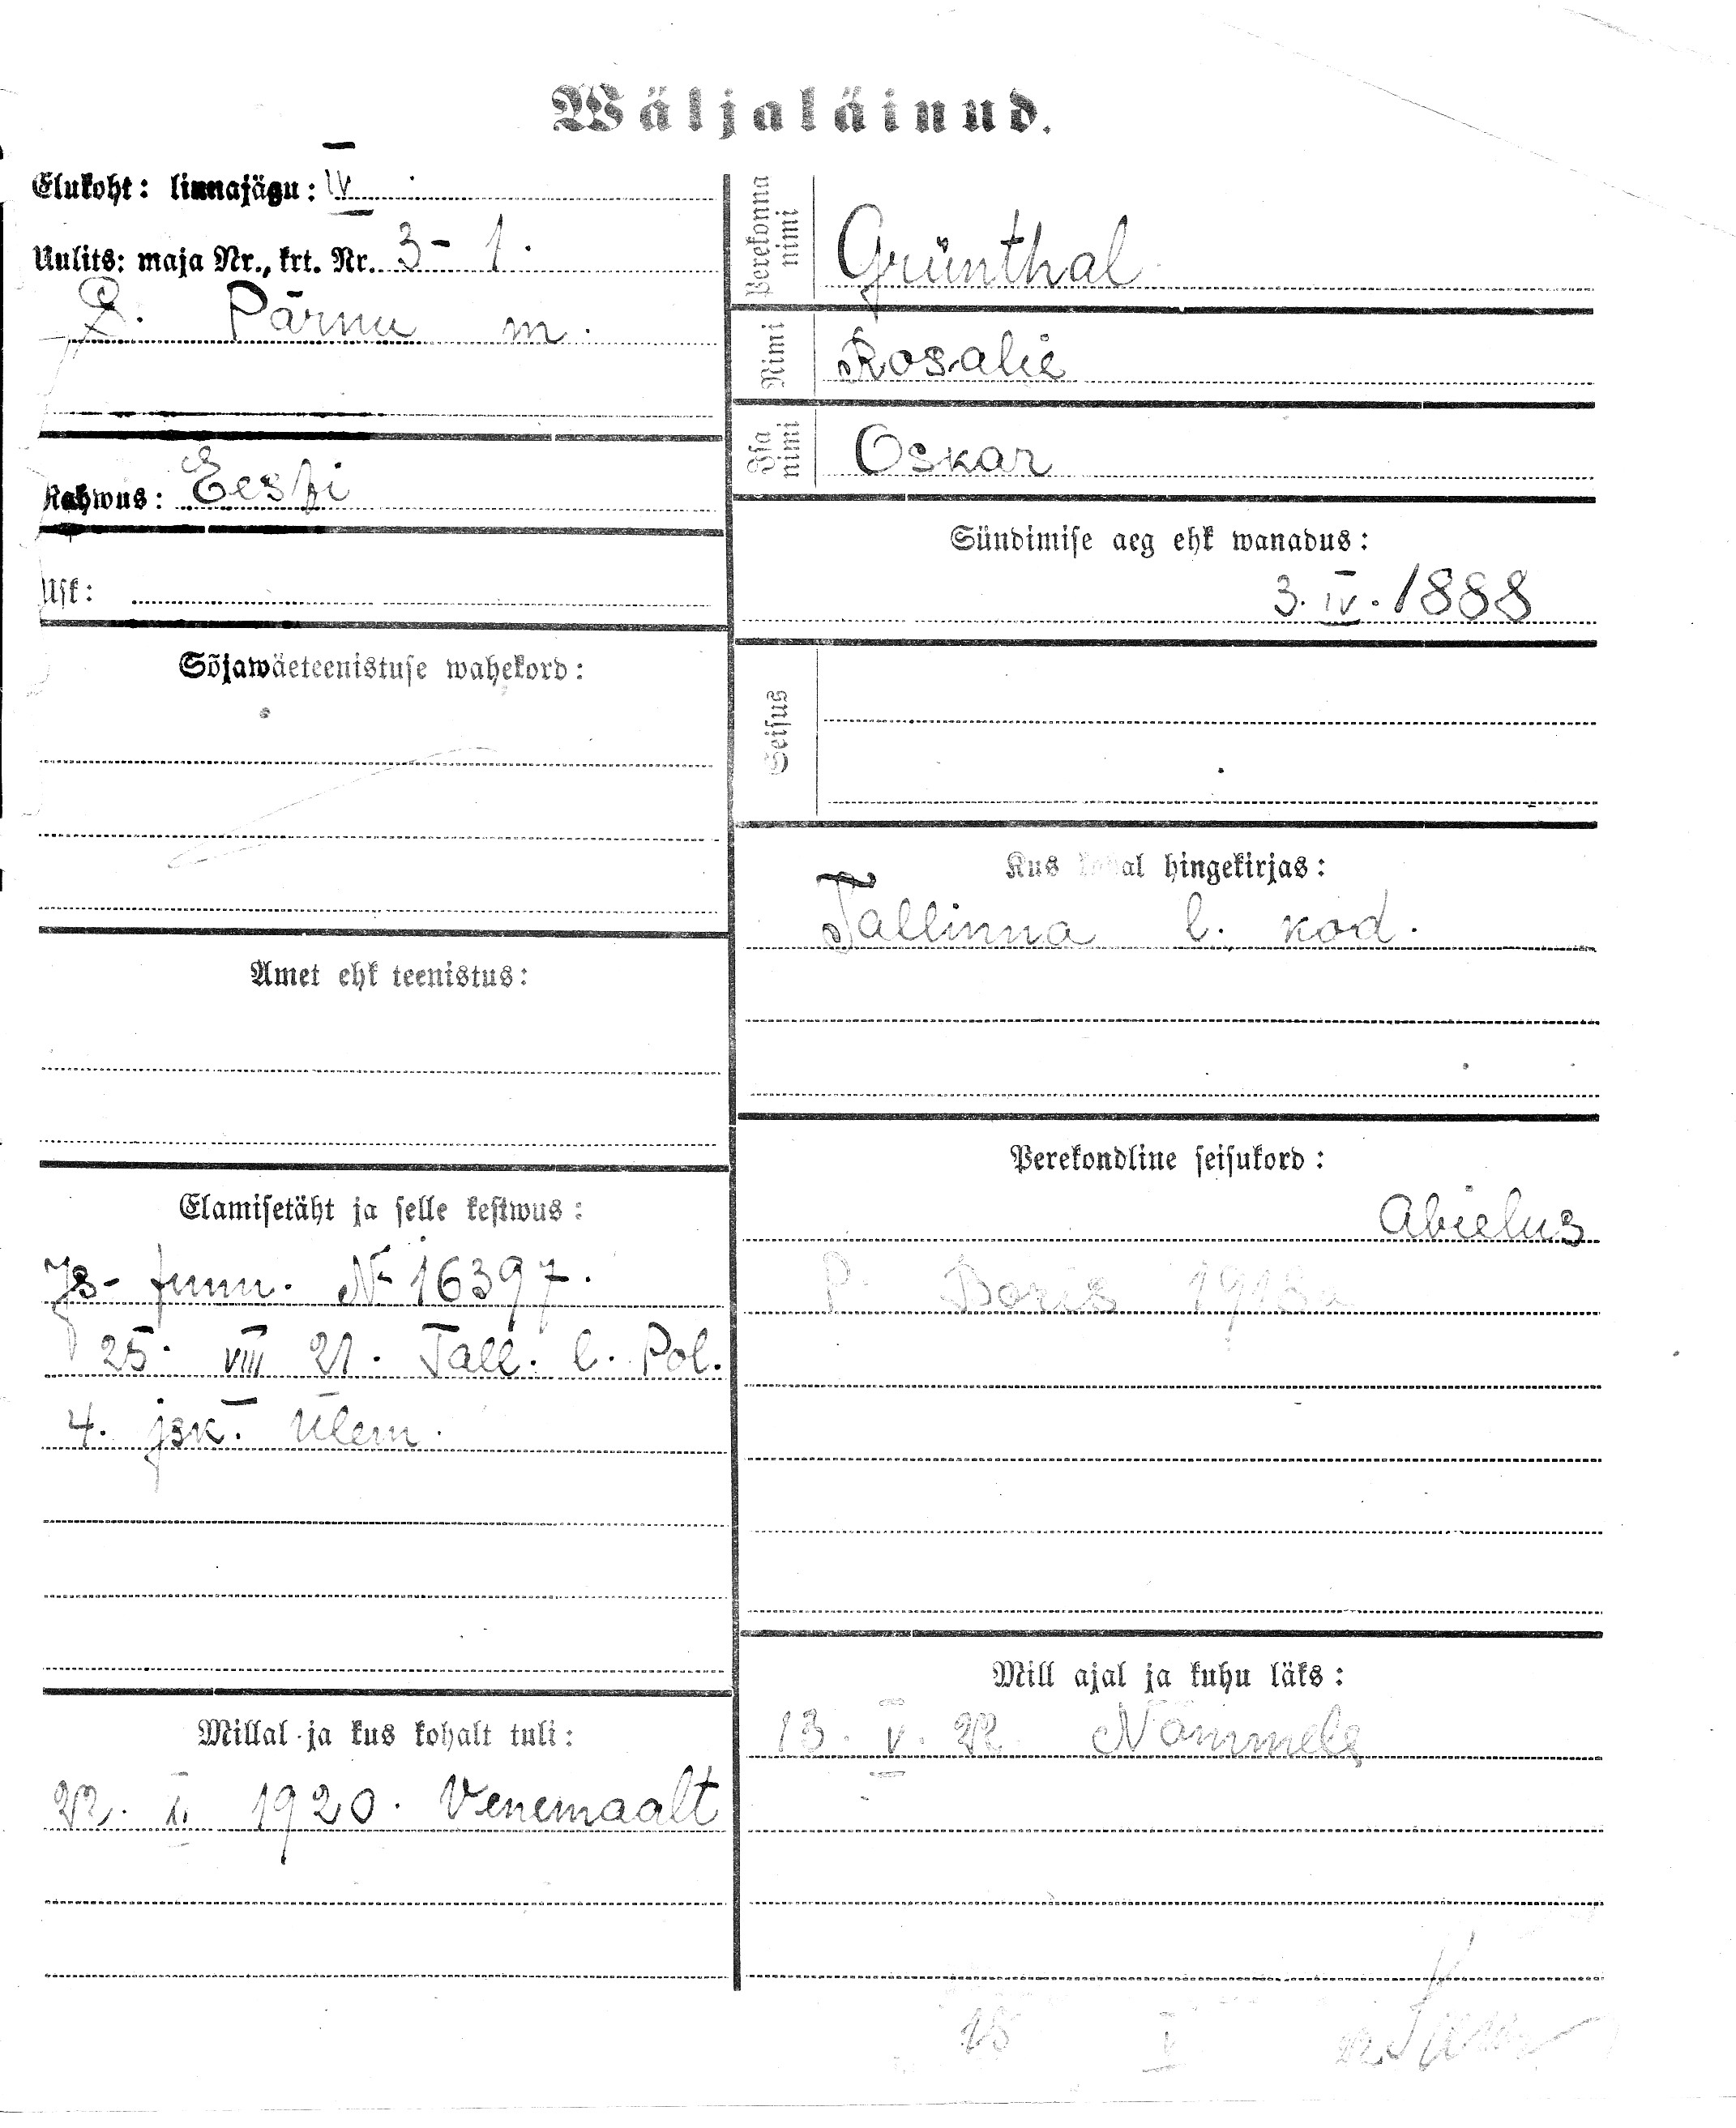 Wäljaläinud.
Elukoht: linnajagu: IV
Uulits: maja Nr., krt. Nr. 3-1.
Pärnu m.
Rahwus: Eesti
Usk:
Sõjawäeteenistuse wahekord:
Amet ehk teenistus:
Elamisetäht ja selle kestwus:
Is- tunn. № 16397.
25. VIII 21. Tall. l. Pol.
4. jsk. Ülem.
Millal ja kus kohalt tuli:
22. X. 1920. Venemaalt
Perekonna nimi
Grünthal
Nimi
Rosalie
Isa nimi
Oskar
Sündimise aeg ehk wanadus:
3. IV. 1888
Seisus
Kus kohal hingekirjas:
Tallinna l. kod.
Perekondline seisukord:
Abielus
P. Boris 1918a
Mill ajal ja kuhu läks:
13. V. 22 Nõmmele
18 V